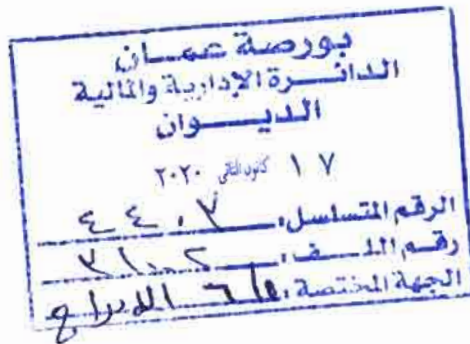 بورصة عمان
الدائرة الإدارية والمالية
الديوان
١٧ كانون الثاني ٢٠٢٠
الرقم المتسلسل: ٤٤٠٧
رقم الملف: ٣١٠٢
الجهة المختصة: الإدراج